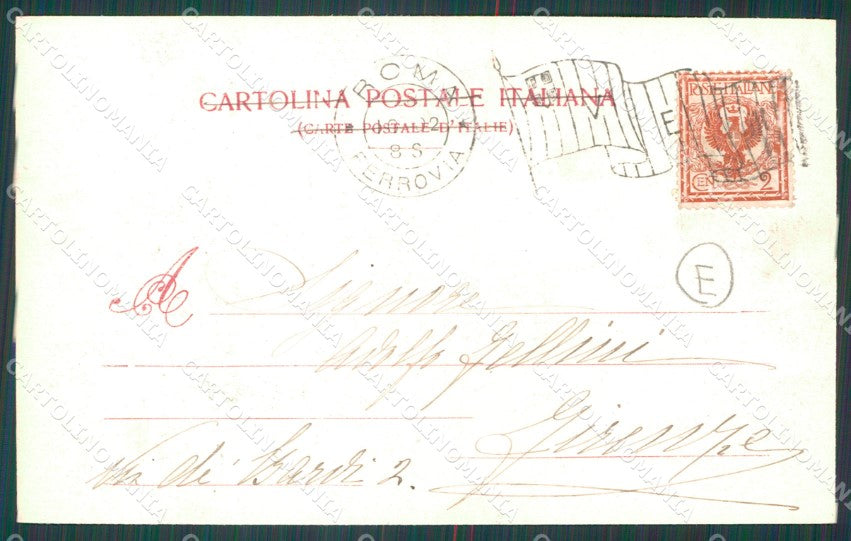 ROMA
FERROVIA
8 S
CARTOLINA POSTALE ITALIANA
(CARTE POSTALE D'ITALIE)
V E
POSTE ITALIANE
CEN 2
E
A
Signore
Adolfo Fellini
Firenze
Via de' Bardi 2.
CARTOLINOMANIA